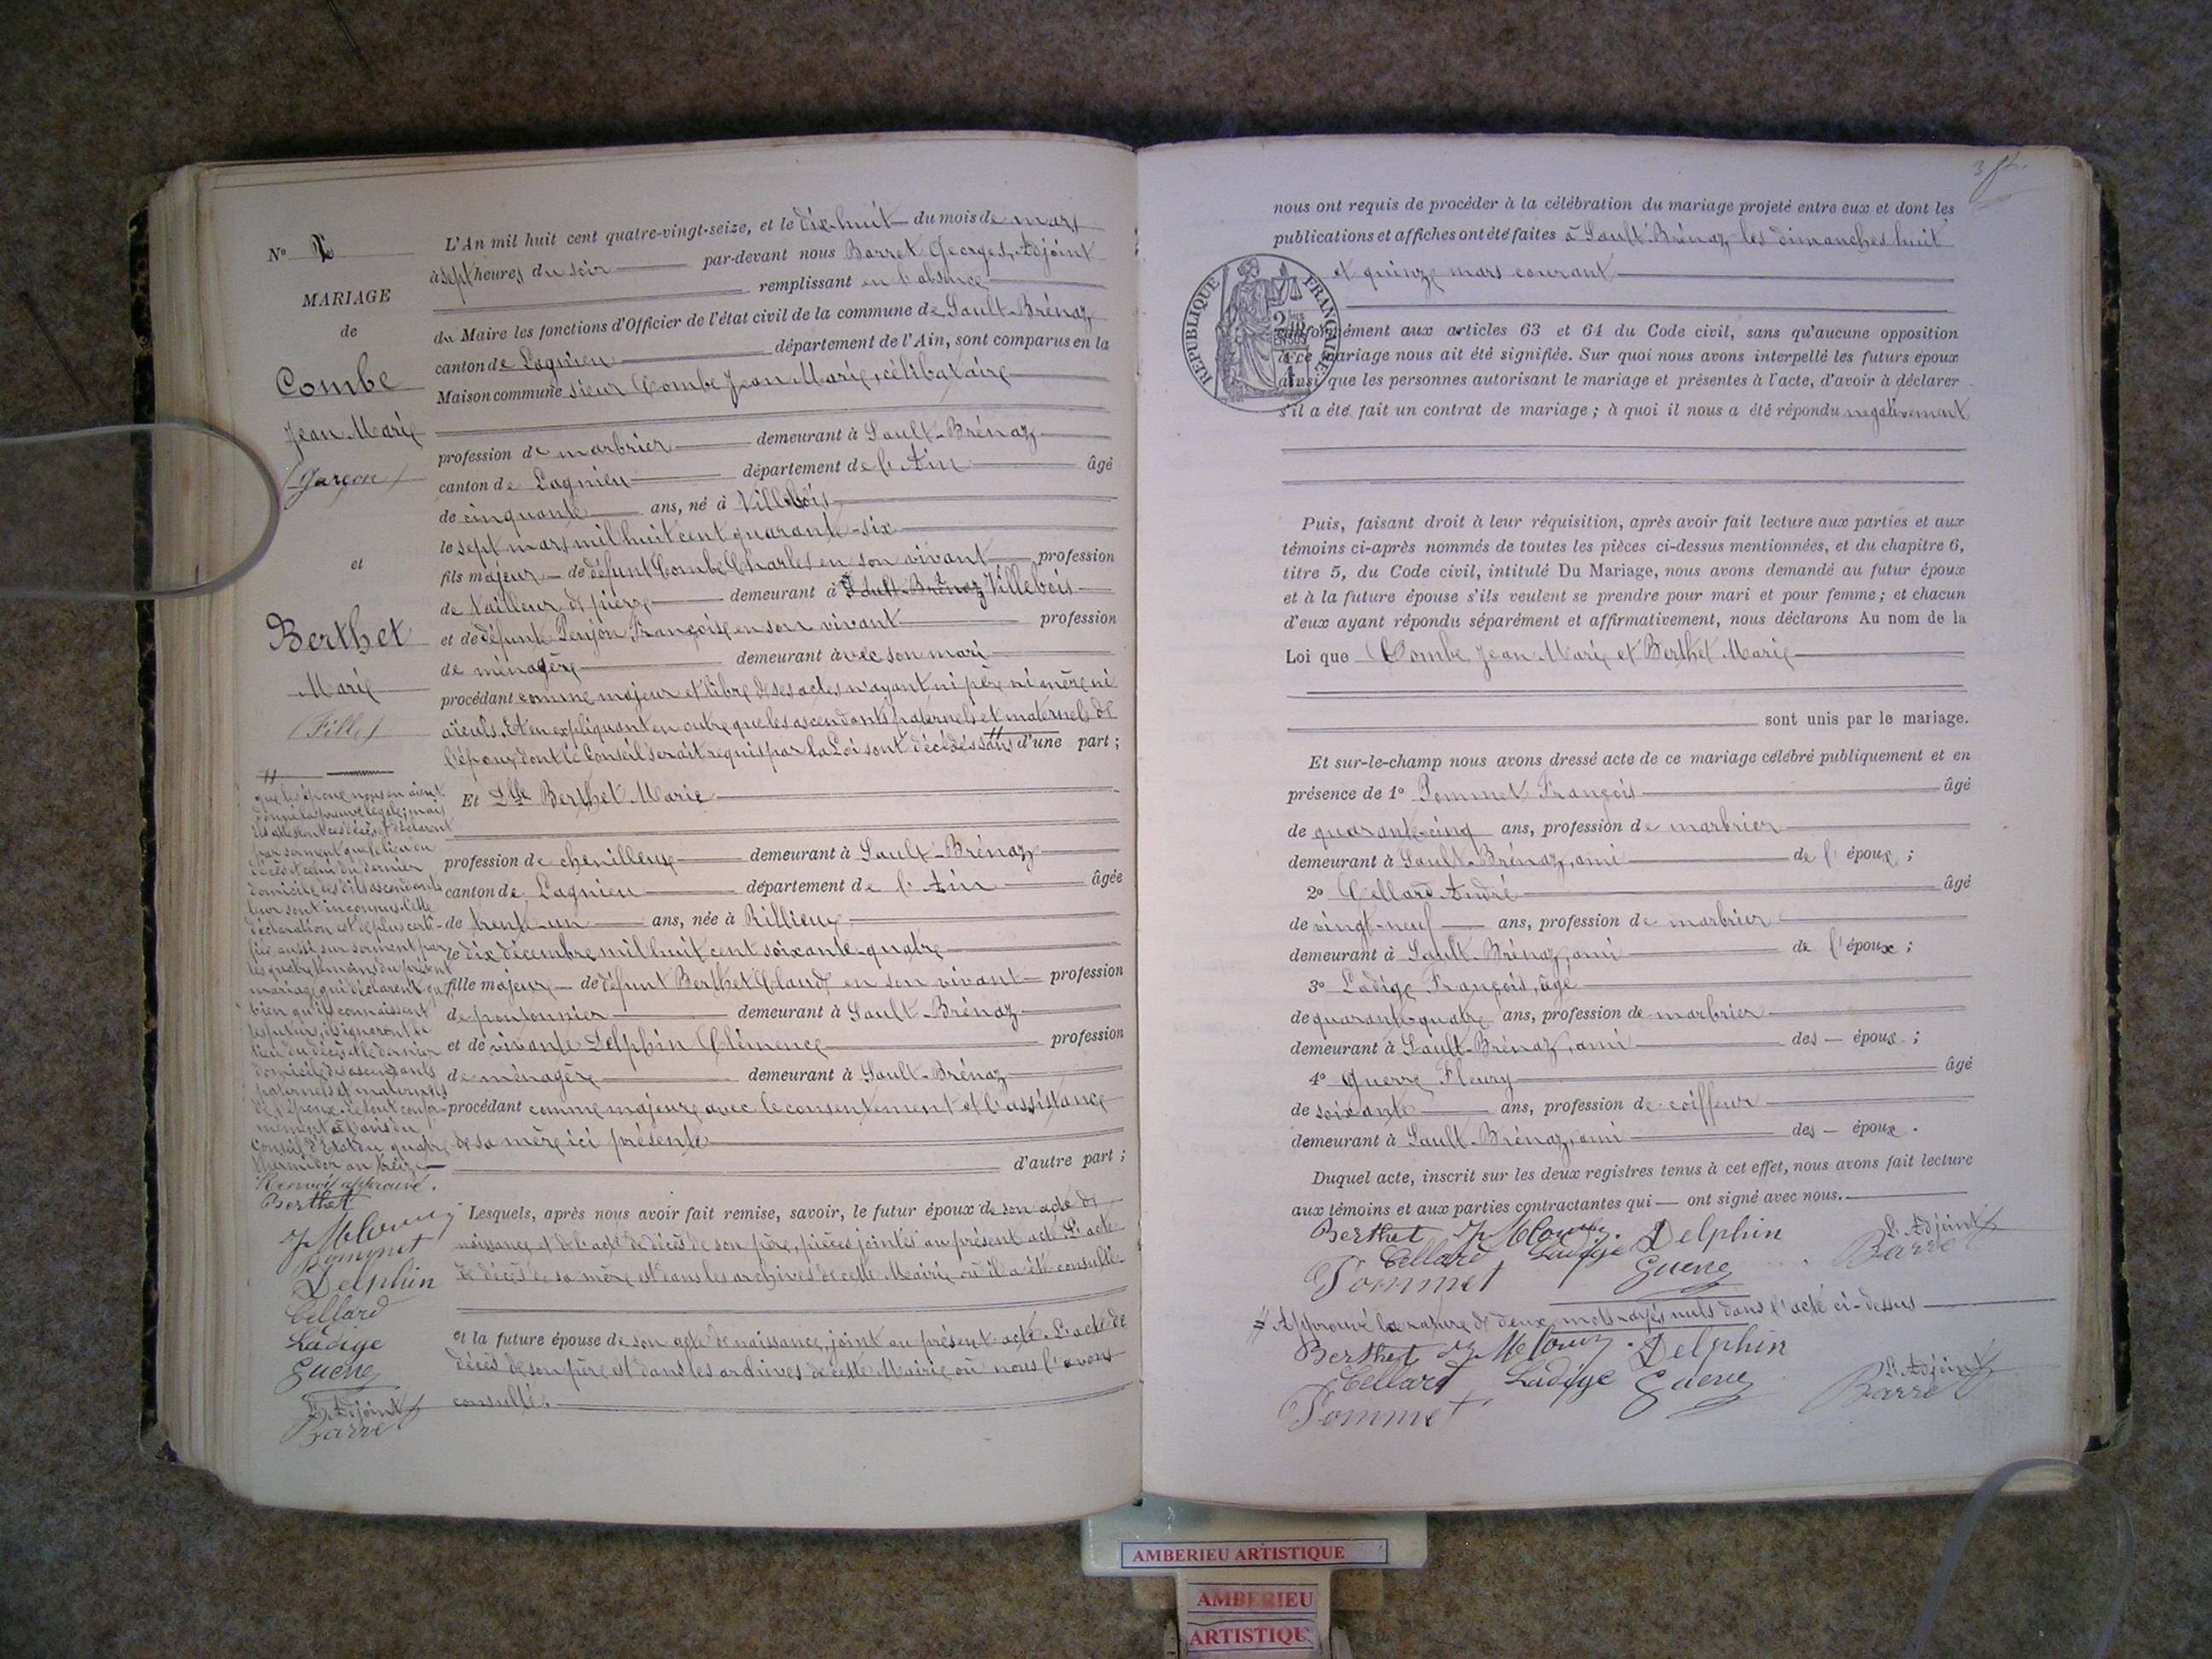 N° 2
MARIAGE
de
Combe
Jean Marie
(Garçon)
et
Berthet
Marie
(Fille)
L'An mil huit cent quatre-vingt-seize, et le dix-huit du mois de mars
à sept heures du soir par-devant nous Barret Georges, Adjoint
remplissant en l'absence
du Maire les fonctions d'Officier de l'état civil de la commune de Sault-Brénaz
canton de Lagnieu département de l'Ain, sont comparus en la
Maison commune sieur Combe Jean Marie, célibataire
profession de marbrier demeurant à Sault-Brénaz
canton de Lagnieu département de l'Ain âgé
de cinquante ans, né à Villebois
le sept mars mil huit cent quarante-six
fils majeur de défunt Combe Charles en son vivant profession
de tailleur de pierre demeurant à Sault-Brénaz Villebois
et de défunte Penjon Françoise en son vivant profession
de ménagère demeurant avec son mari
procédant comme majeur et libre de ses actes n'ayant ni père ni mère ni
aïeuls. Et en expliquant en outre que les ascendants paternels et maternels de
l'époux dont le Conseil serait requis par la Loi sont décédés sans // d'une part ;
Et Dlle Berthet Marie
profession de chenilleuse demeurant à Sault-Brénaz
canton de Lagnieu département de l'Ain âgée
de trente-un ans, née à Rillieux
le dix décembre mil huit cent soixante-quatre
fille majeure de défunt Berthet Claude en son vivant profession
de pontonnier demeurant à Sault-Brénaz
et de vivante Delphin Clémence profession
de ménagère demeurant à Sault-Brénaz
procédant comme majeure avec le consentement et l'assistance
de sa mère ici présente
d'autre part ;
Lesquels, après nous avoir fait remise, savoir, le futur époux de son acte de
naissance et de l'acte de décès de son père, pièces jointes au présent acte. L'acte
de décès de sa mère est dans les archives de cette Mairie où il a été consulté.
et la future épouse de son acte de naissance, joint au présent acte. L'acte de
décès de son père est dans les archives de cette Mairie où nous l'avons
consulté.
//
que les époux nous en aient
donné la preuve légale ; mais
ils attestent ces décès et déclarent
par serment que le lieu du
décès et celui du dernier
domicile des dits ascendants
leur sont inconnus. Cette
déclaration est de plus certi-
fiée aussi sur serment par
les quatre témoins du présent
mariage qui déclarent que
bien qu'ils connaissent
les futurs, ils ignorent le
lieu du décès et le dernier
domicile des ascendants
paternels et maternels
de l'époux. Le tout confor-
mément à l'avis du
Conseil d'Etat du quatre
thermidor an treize
Renvoi approuvé.
Berthet
Pommet
Delphin
Cellard
Ladige
Guerre
L'Adjoint
Barret
nous ont requis de procéder à la célébration du mariage projeté entre eux et dont les
publications et affiches ont été faites à Sault-Brénaz les dimanches huit
et quinze mars courant
RÉPUBLIQUE FRANÇAISE
conformément aux articles 63 et 64 du Code civil, sans qu'aucune opposition
à ce mariage nous ait été signifiée. Sur quoi nous avons interpellé les futurs époux
ainsi que les personnes autorisant le mariage et présentes à l'acte, d'avoir à déclarer
s'il a été fait un contrat de mariage ; à quoi il nous a été répondu négativement
Puis, faisant droit à leur réquisition, après avoir fait lecture aux parties et aux
témoins ci-après nommés de toutes les pièces ci-dessus mentionnées, et du chapitre 6,
titre 5, du Code civil, intitulé Du Mariage, nous avons demandé au futur époux
et à la future épouse s'ils veulent se prendre pour mari et pour femme ; et chacun
d'eux ayant répondu séparément et affirmativement, nous déclarons Au nom de la
Loi que Combe Jean Marie et Berthet Marie
sont unis par le mariage.
Et sur-le-champ nous avons dressé acte de ce mariage célébré publiquement et en
présence de 1° Pommet François âgé
de quarante-cinq ans, profession de marbrier
demeurant à Sault-Brénaz, ami de l'époux ;
2° Cellard André âgé
de vingt-neuf ans, profession de marbrier
demeurant à Sault-Brénaz, ami de l'époux ;
3° Ladige François, âgé
de quarante-quatre ans, profession de marbrier
demeurant à Sault-Brénaz, ami des époux ;
4° Guerre Fleury âgé
de soixante ans, profession de coiffeur
demeurant à Sault-Brénaz, ami des époux.
Duquel acte, inscrit sur les deux registres tenus à cet effet, nous avons fait lecture
aux témoins et aux parties contractantes qui ont signé avec nous.
Berthet Delphin L'Adjoint
Cellard Ladige Barret
Pommet Guerre
# Approuvé la rature de deux mots rayés nuls dans l'acte ci-dessus
Berthet Delphin
Cellard Ladige Guerre L'Adjoint
Pommet Barret
AMBERIEU ARTISTIQUE
AMBERIEU
ARTISTIQUE